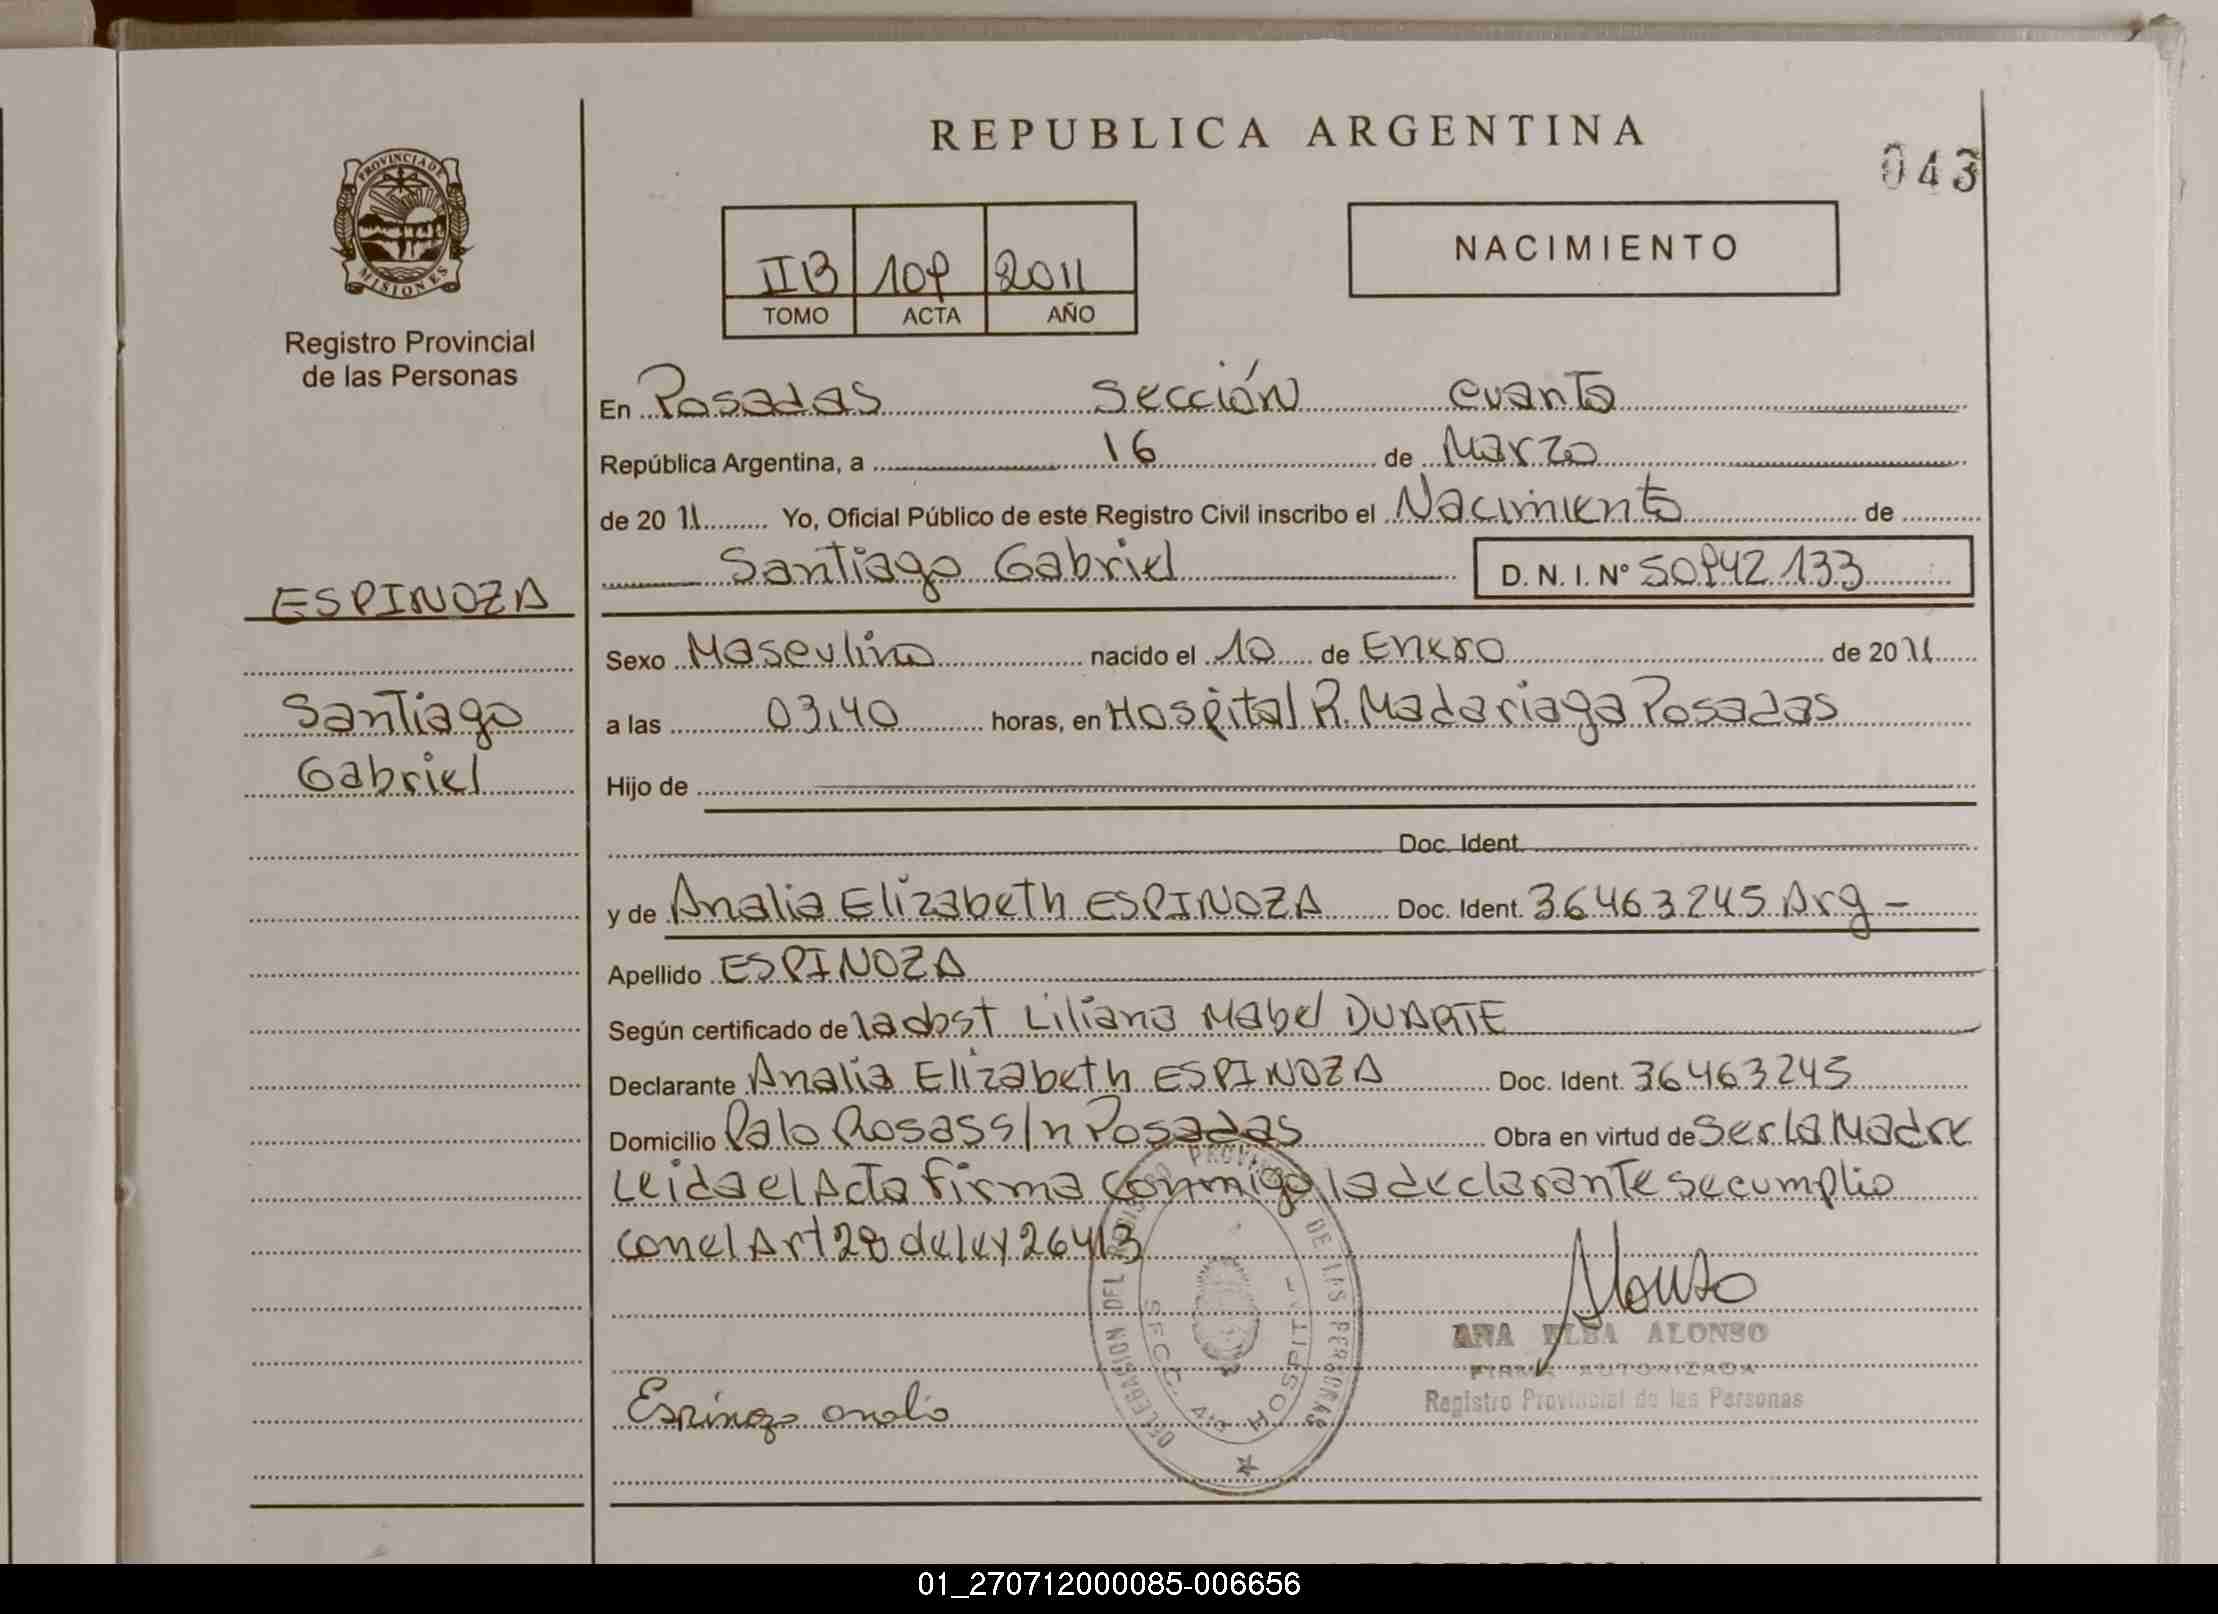 REPUBLICA ARGENTINA
043
PROVINCIA DE
MISIONES
Registro Provincial
de las Personas
IIB 109 2011
TOMO ACTA AÑO
NACIMIENTO
En Posadas Sección cuarta
República Argentina, a 16 de Marzo
de 2011 Yo, Oficial Público de este Registro Civil inscribo el Nacimiento de
Santiago Gabriel D. N. I. Nº 50942133
ESPINOZA
Santiago
Gabriel
Sexo Masculino nacido el 10 de Enero de 2011
a las 03,40 horas, en Hospital R. Madariaga Posadas
Hijo de
Doc. Ident.
y de Analia Elizabeth ESPINOZA Doc. Ident. 36463245 Arg -
Apellido ESPINOZA
Según certificado de la obst Liliana Mabel DUARTE
Declarante Analia Elizabeth ESPINOZA Doc. Ident. 36463245
Domicilio Palo Rosas s/n Posadas Obra en virtud de Ser la Madre
Leida el Acta firma conmigo la declarante se cumplio
con el Art 28 de ley 26413
Alonso
ANA ELBA ALONSO
FIRMA AUTORIZADA
Registro Provincial de las Personas
Espinoza analia
DELEGACION DEL REGISTRO PROVINCIAL DE LAS PERSONAS
SECC. 4ta HOSPITAL
01_270712000085-006656